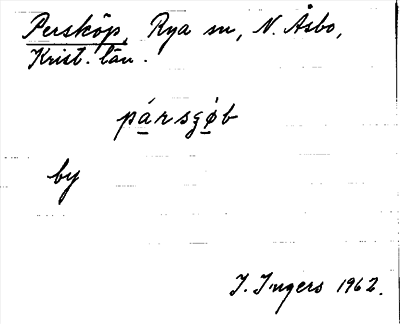 Persköp, Rya sn, N. Åsbo,
Krist. län.
pársgǿb
by
I. Ingers 1962.